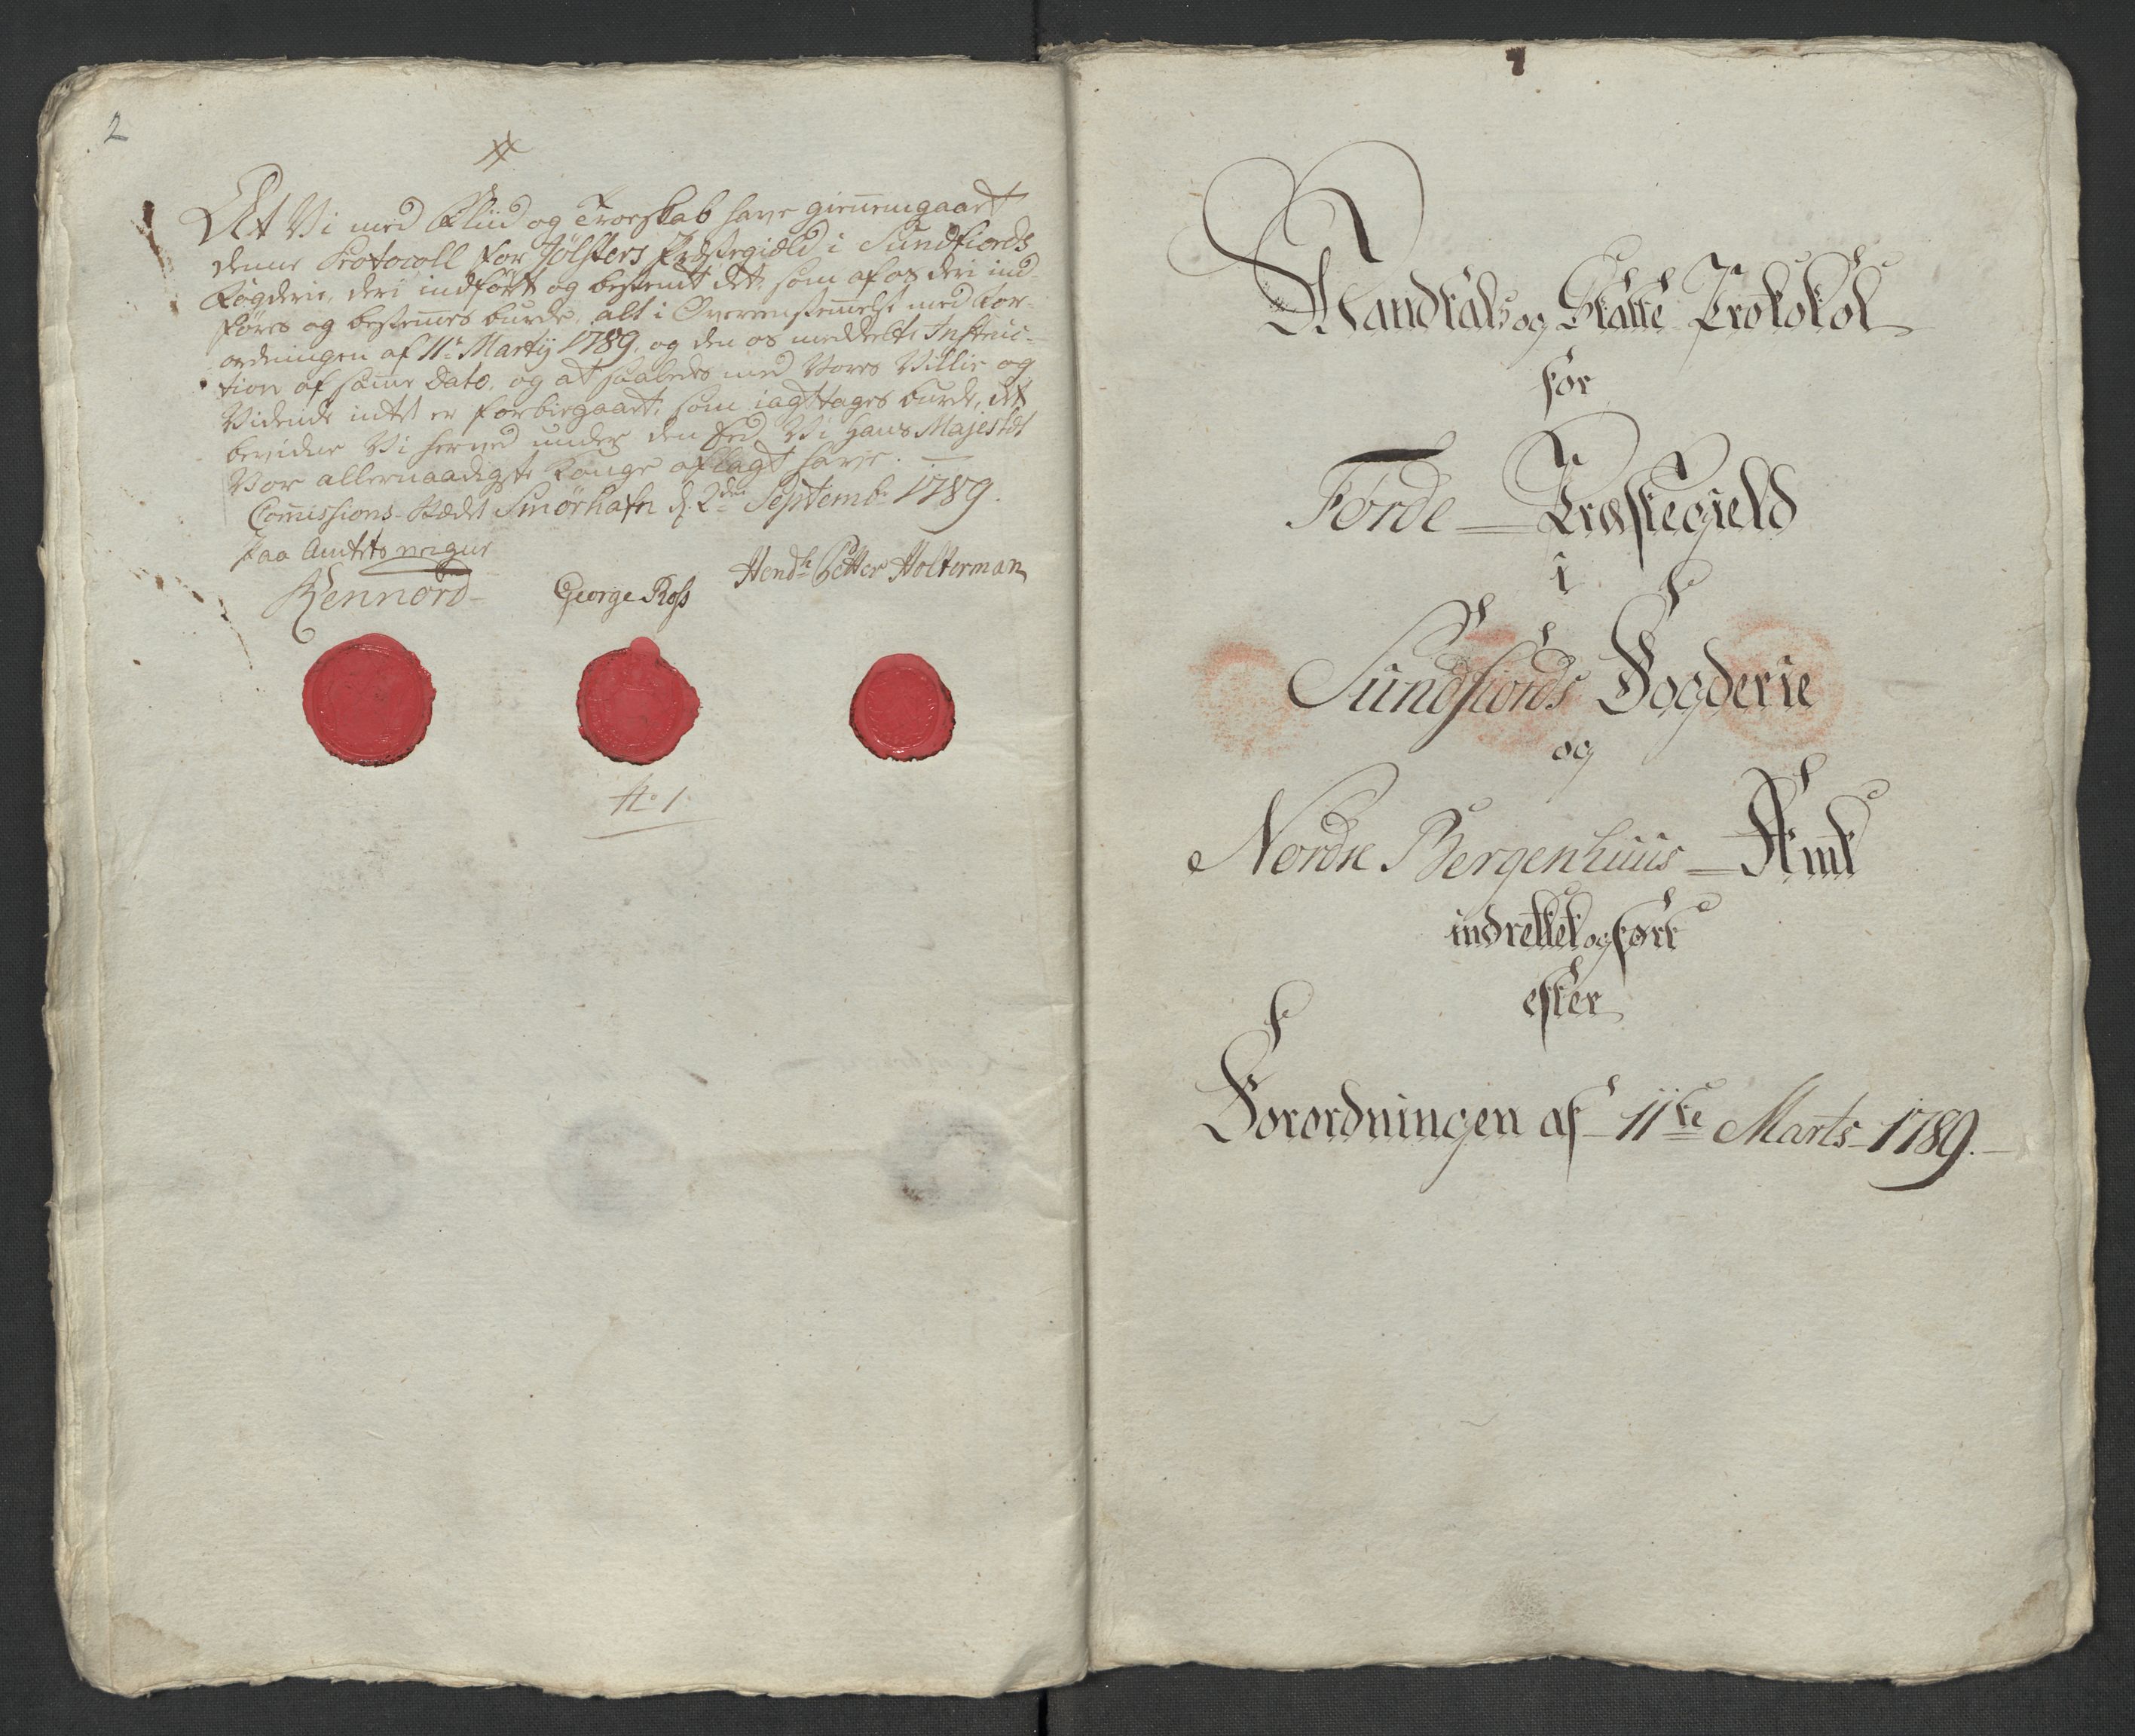 2
At Vi med Fliid og Troeskab have gien̄emgaaet
denne Protocoll for Jölsters Præstegield i Sundfiords
Fogderie, deri indfört og bestemt det, som af os deri ind-
föres og bestem̄es burde, alt i Overensstem̄else med For-
ordningen af 11te Martij 1789, og den os meddeelte Instruc-
tion af sam̄e Dato, og at saaledes med Vores Villie og
Vidende intet er forbiegaaet, som iagttages burde, det
bevidner Vi herved under den Eed Vi Hans Majestæt
Vor allernaadigste Konge aflagt have. —
Com̄issions-Stædet Smörhafn d. 2den Septembr 1789.
Paa Amtets vegne
Hendk Petter Holterman
Kennord
George Ross
No 1
Mandtals og Skatte Protokol
for
Förde Præstegield
i
Sundfiords Fogderie
og
Nordre Bergenhuus Amt
indrettet og fört
efter
Forordningen af 11te Marts 1789.